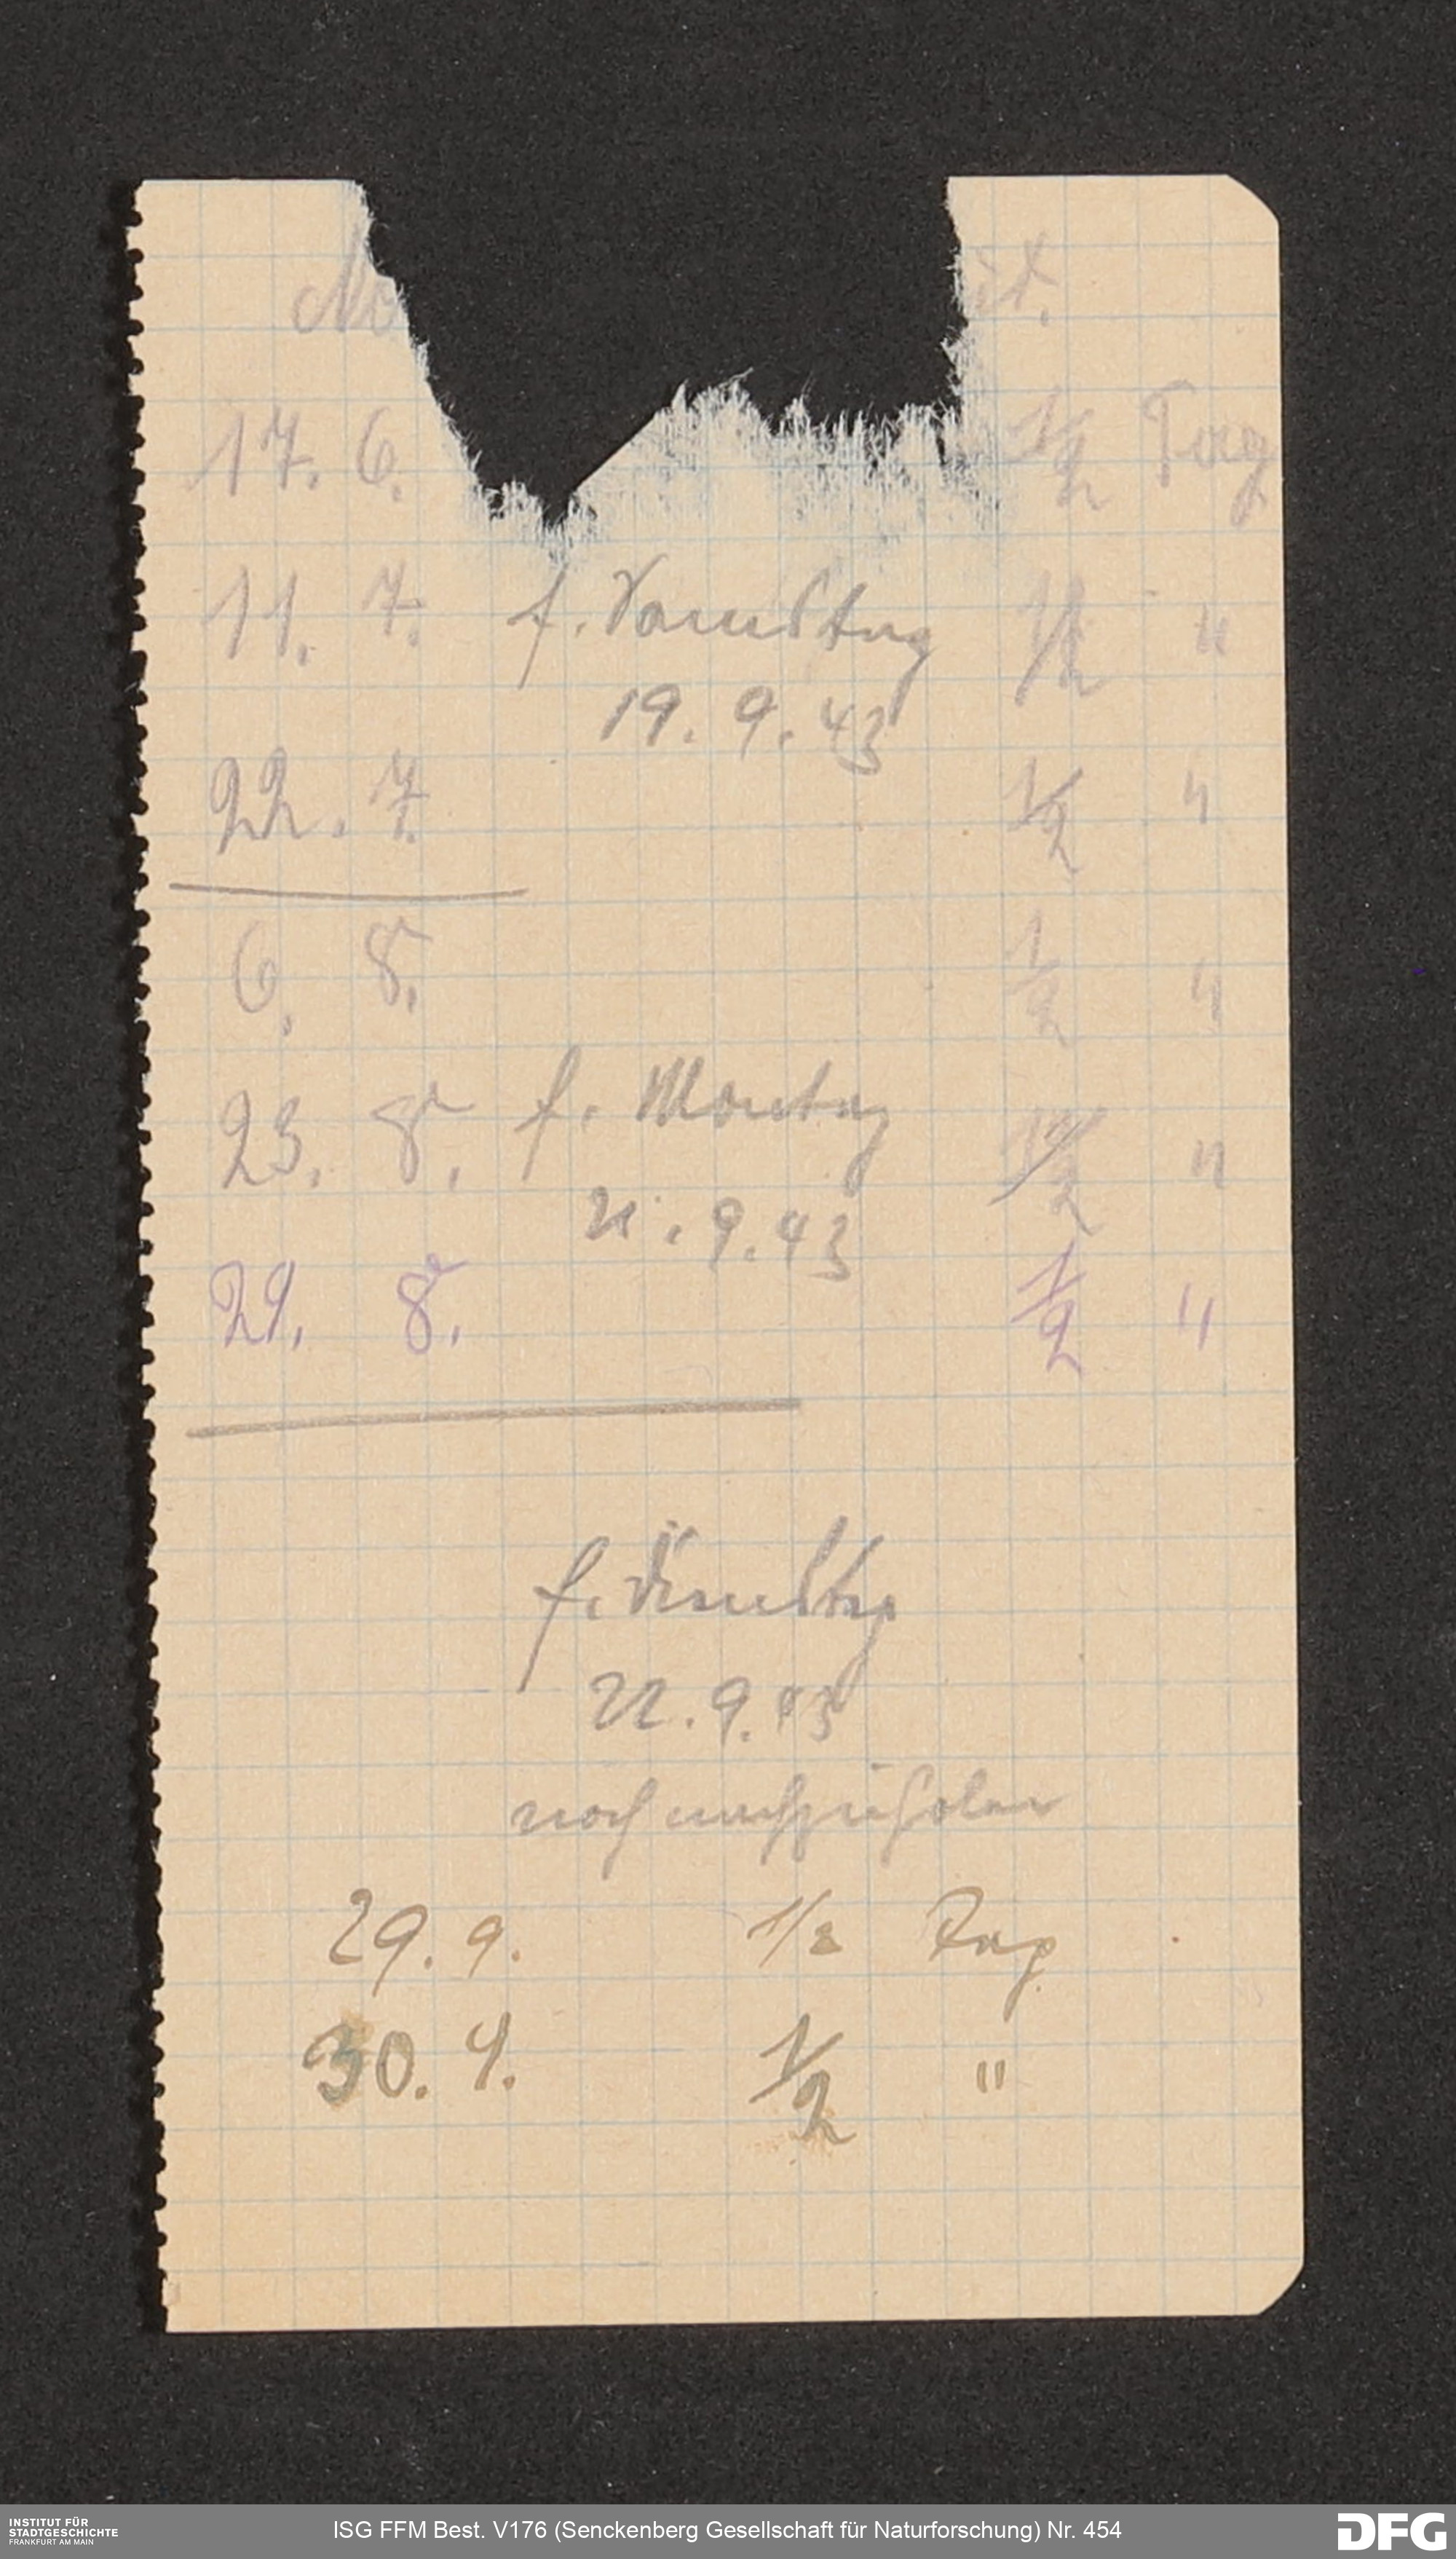 17. 6. 1/2 Tag
11. 7. f. Samstag 1/2 "
19. 9. 43
22. 7. 1/2 "
6. 8. 1/2 "
23. 8. f. Montag 1/2 "
21. 9. 43
29. 8. 1/2 "
f. Dienstag
22. 9. 43
noch nachzuholen
29. 9. 1/2 Tag
30. 9. 1/2 "
INSTITUT FÜR
STADTGESCHICHTE
FRANKFURT AM MAIN
ISG FFM Best. V176 (Senckenberg Gesellschaft für Naturforschung) Nr. 454
DFG